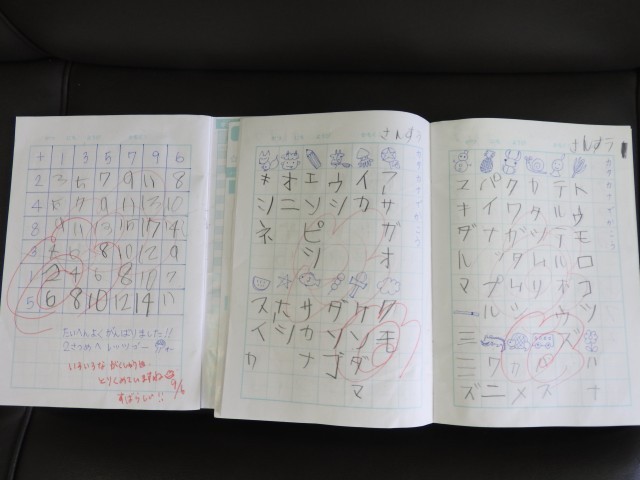 + 1 3 5 7 9 6
2 3 5 7 9 11 8
4 5 7 9 11 13 10
8 9 11 13 15 17 14
3 4 6 8 10 12 9
1 2 4 6 8 10 7
5 6 8 10 12 14 11
たいへんよくがんばりました!!
2さつめへ レッツゴー
いろいろな がくしゅうに
とりくめていますね 9/6
すばらしい!!
さんすう
カタカナでかこう
アサガオ
イカ
ウシ
エンピツ
オニ
キシネ
ク毛
ケンダマ
ダンゴ
サカナ
ホシ
スイカ
さんすう
カタカナでかこう
トウモロコツ
ユキダルマ
ハナ
バス
カメ
ワニ
ミミズ